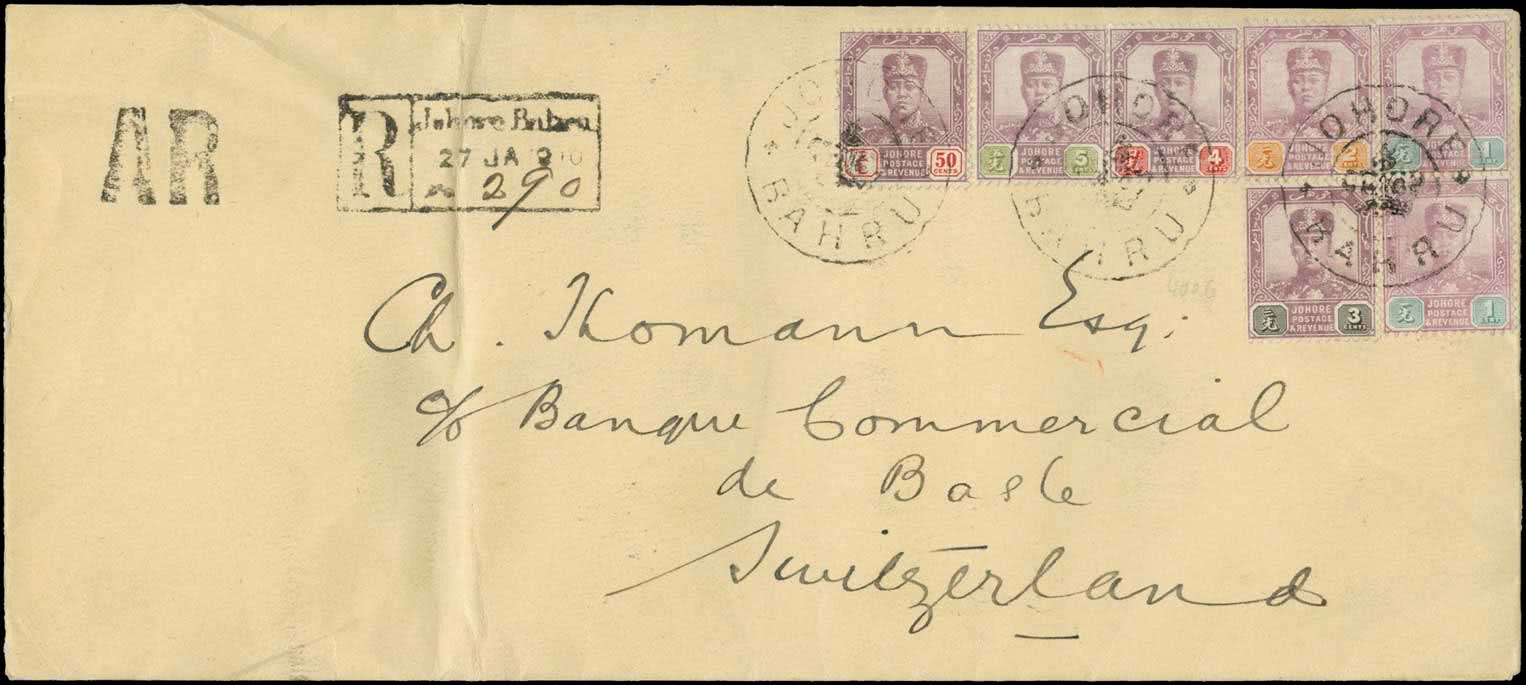 AR
R
Johore Bahru
27 JA
290
50
CENTS
JOHORE
POSTAGE
& REVENUE
5
JOHORE
POSTAGE
& REVENUE
4
JOHORE
POSTAGE
& REVENUE
2
JOHORE
POSTAGE
& REVENUE
1
CENT
JOHORE
POSTAGE
& REVENUE
3
CENTS
JOHORE
POSTAGE
& REVENUE
1
CENT
JOHORE
POSTAGE
& REVENUE
BAHRU
JOHORE
BAHRU
JOHORE
BAHRU
Ch. Thomann Esq:
c/o Banque Commercial
de Basle
Switzerland